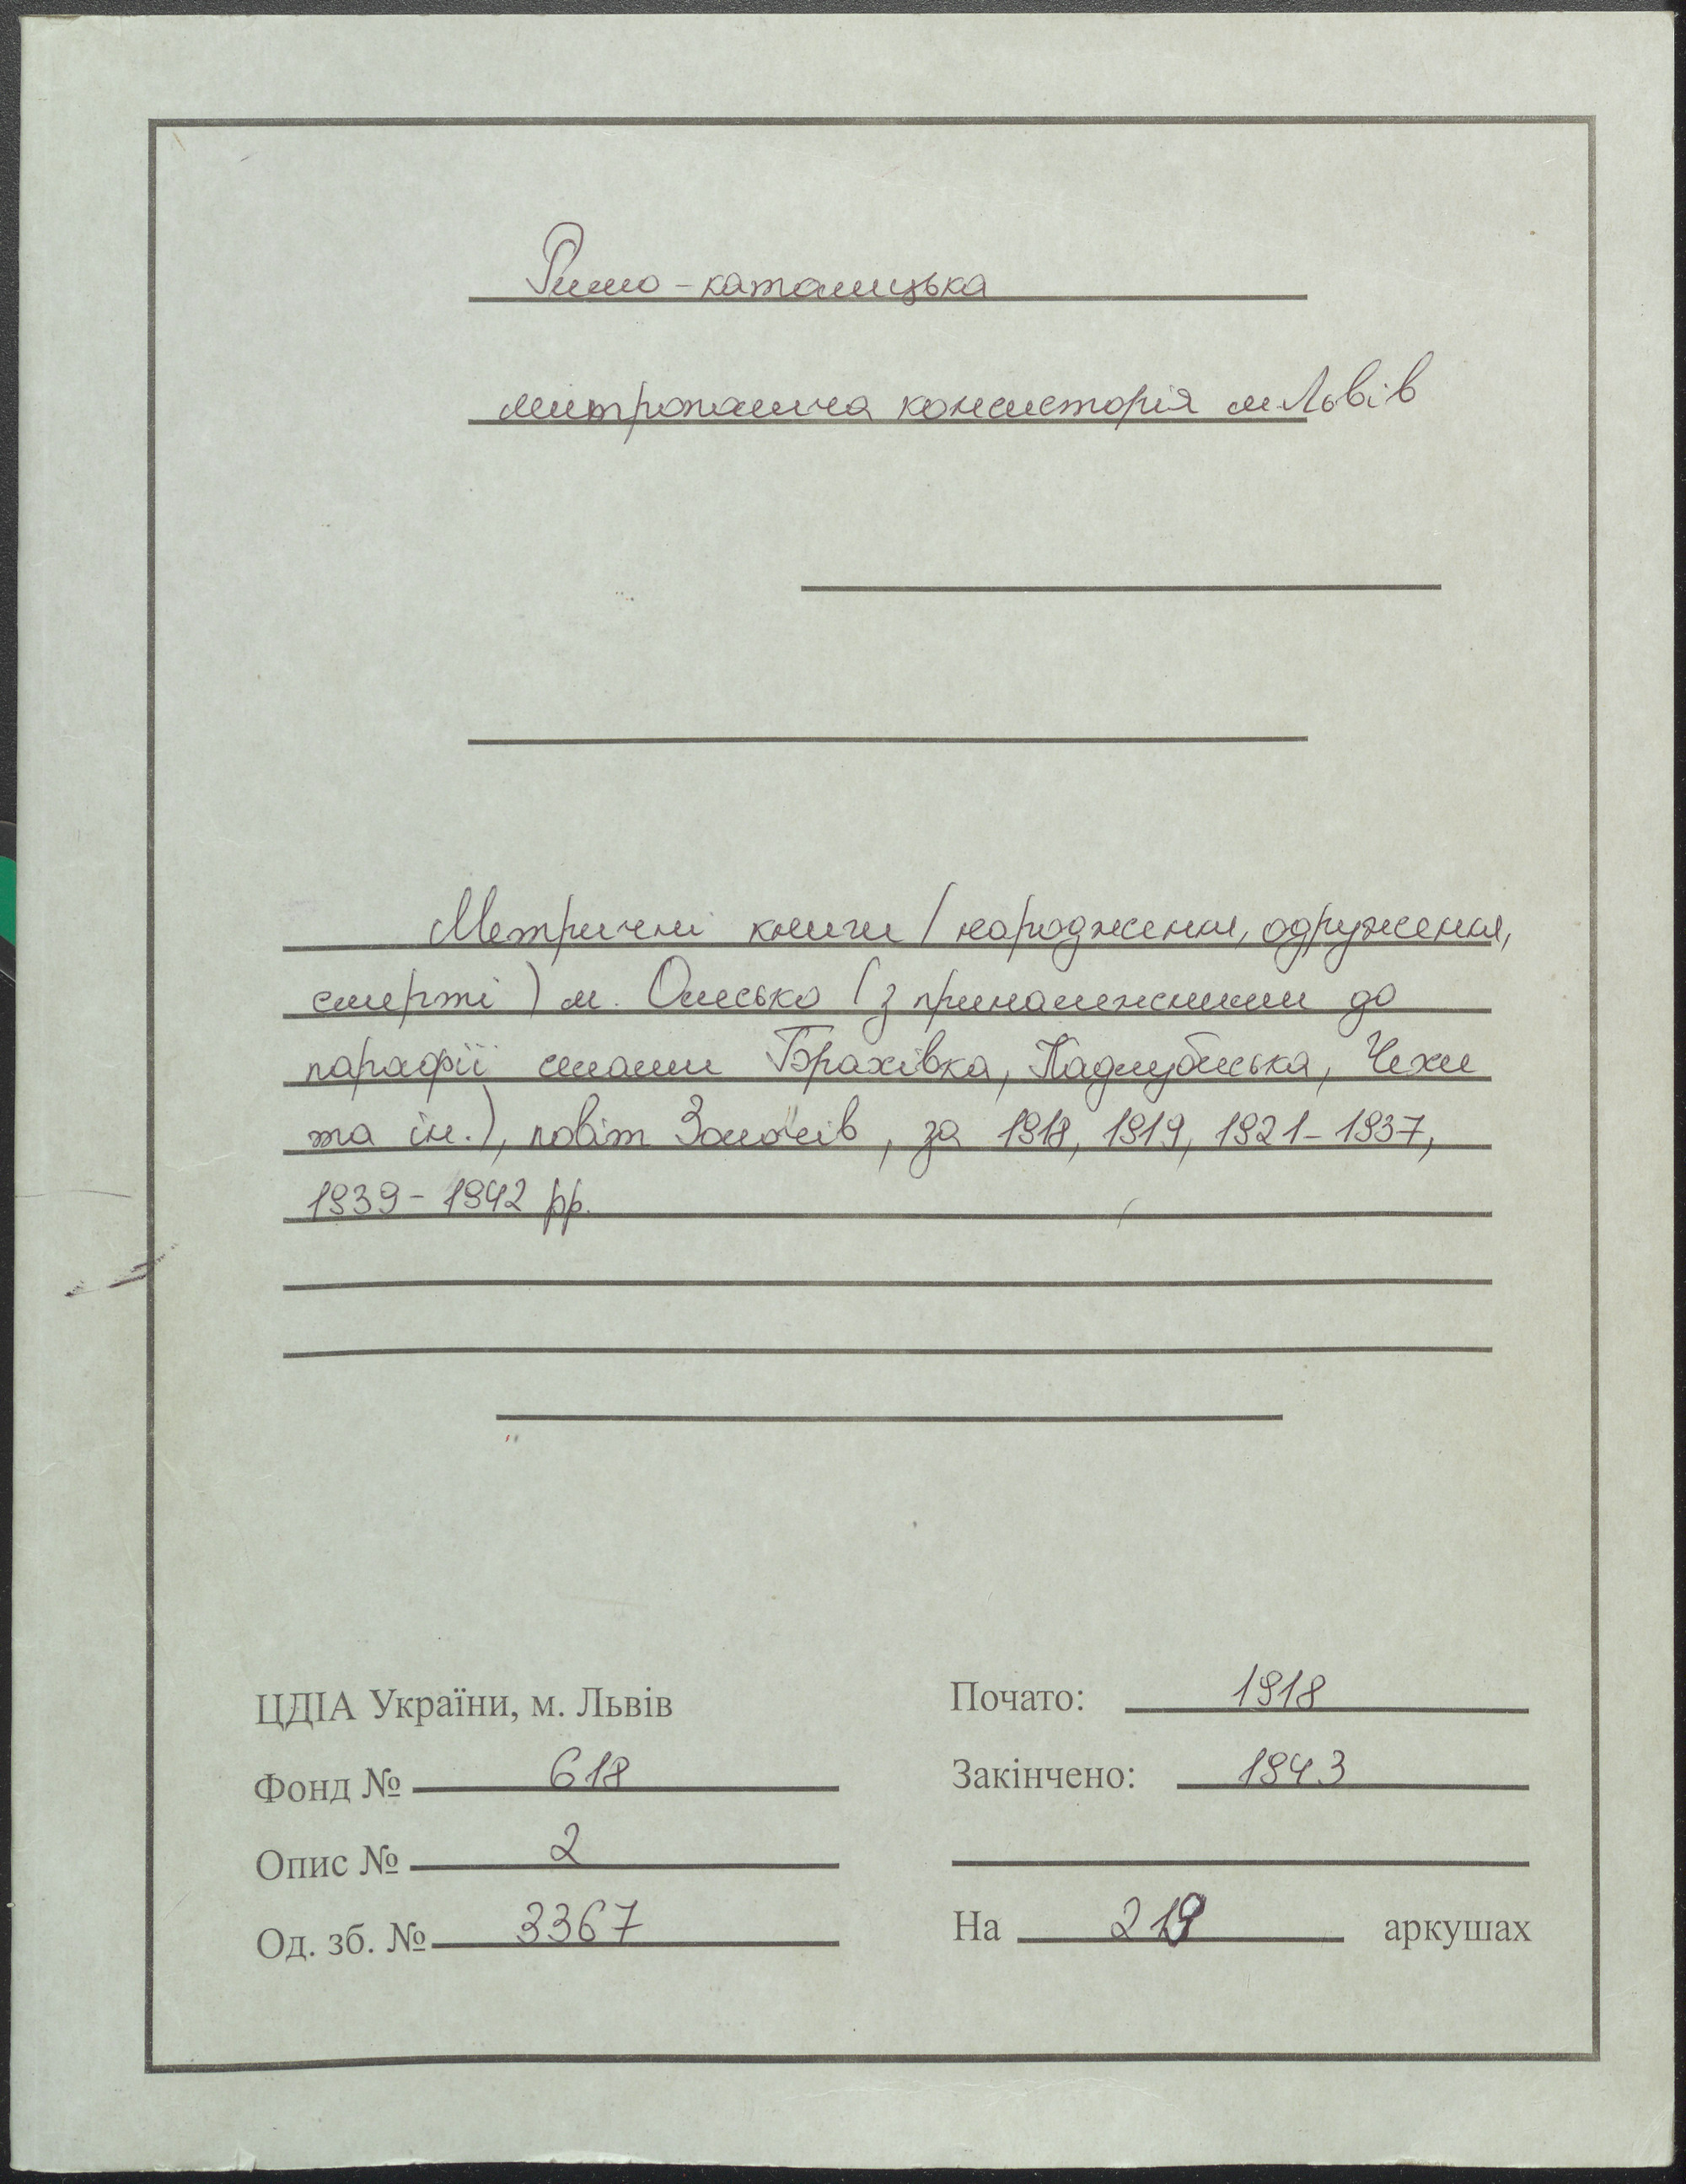 Римо-католицька
митрополича консисторія м. Львів
Метричні книги (народження, одруження,
смерті) м. Олесько (з приналежними до
парафії селами Брахівка, Кадлубиська, Чехи
та ін.), повіт Золочів, за 1918, 1919, 1921-1937,
1939-1942 рр.
ЦДІА України, м. Львів
Фонд № 618
Опис № 2
Од. зб. № 3367
Почато: 1918
Закінчено: 1943
На 219 аркушах